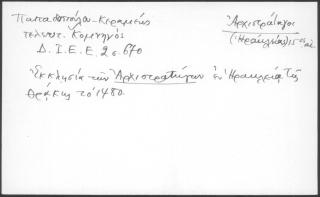 Παπαδοπούλου-Κεραμεύς
τελευτ. Κομνηνός
Δ.Ι.Ε.Ε 2 σ. 670
Ἀρχιστράτηγοι
(Ἡράκλεια) 15ος αἰ.
Ἐκκλησία τῶν Ἀρχιστρατήγων ἐν Ἡρακλείᾳ τῆς
Θράκης τὸ 1480.